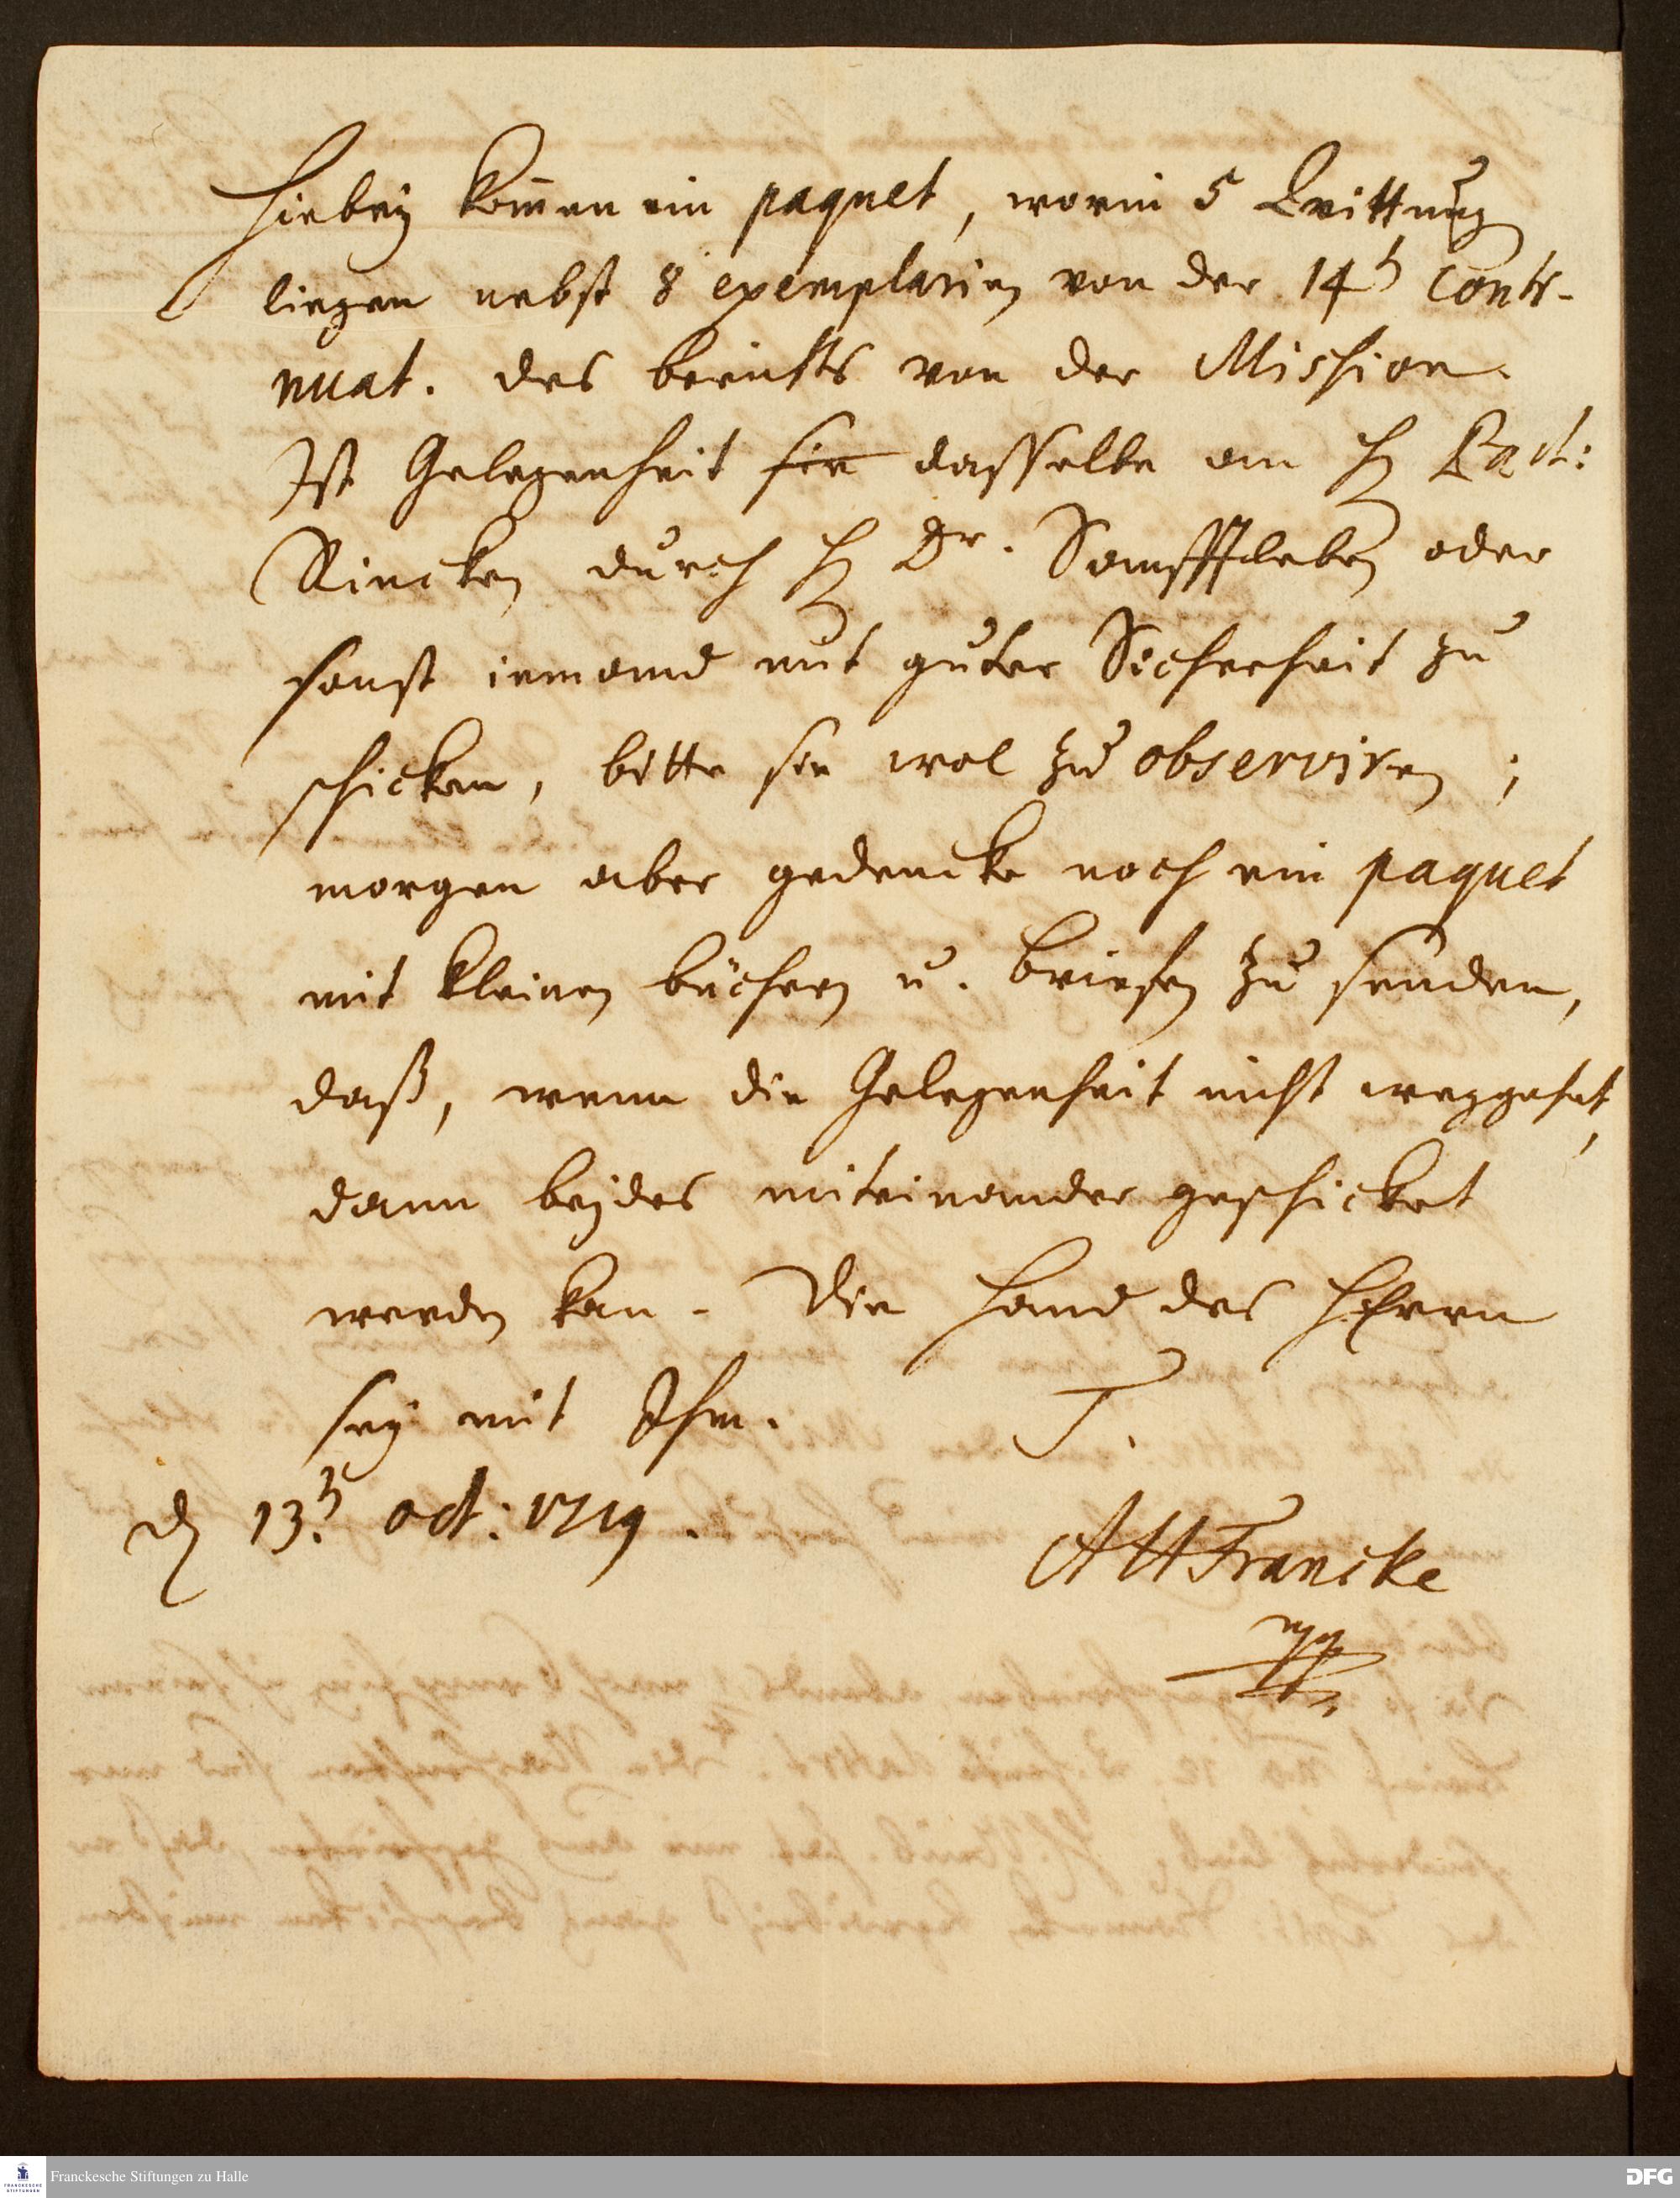 Hiebey kom̅en ein paquet, worin 5 Quittung
liegen nebst 8 exemplarien von der 14t Conti-
nuat. des berichts von der Mission.
Ist Gelegenheit sie dasselbe an H Past:
Rincken durch H Dr. Sanfftleben oder
sonst iemand mit guter Sicherheit zu
schicken, bitte sie wol zu observiren;
morgen aber gedencke noch ein paquet
mit kleinen büchern u. briefen zu senden,
daß, wenn die Gelegenheit nicht weggehet,
dann beydes miteinander geschicket
werden kan. Die Hand des HErrn
sey mit Ihm. T.
d 13t oct: 1719.
AHFrancke
Franckesche Stiftungen zu Halle
FRANCKESCHE STIFTUNGEN
DFG